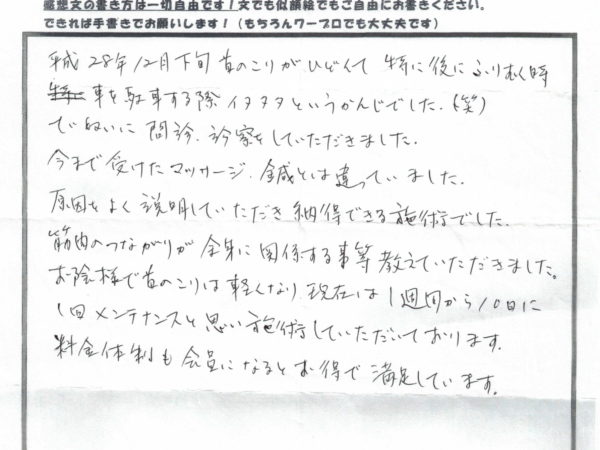 感想文の書き方は一切自由です！文でも似顔絵でもご自由にお書きください。
できれば手書きでお願いします！（もちろんワープロでも大丈夫です）
平成28年12月下旬 首のこりがひどくて 特に後にふりむく時
車を駐車する際 イタタタというかんじでした。（笑）
ていねいに 問診、診察をしていただきました。
今まで受けたマッサージ、鍼とは違っていました。
原因をよく説明していただき 納得できる施術でした。
筋肉のつながりが全身に関係する事等教えていただきました。
お陰様で首のこりは軽くなり現在は1週間から10日に
1回メンテナンスと思い施術していただいております。
料金体制も会員になるとお得で満足しています。